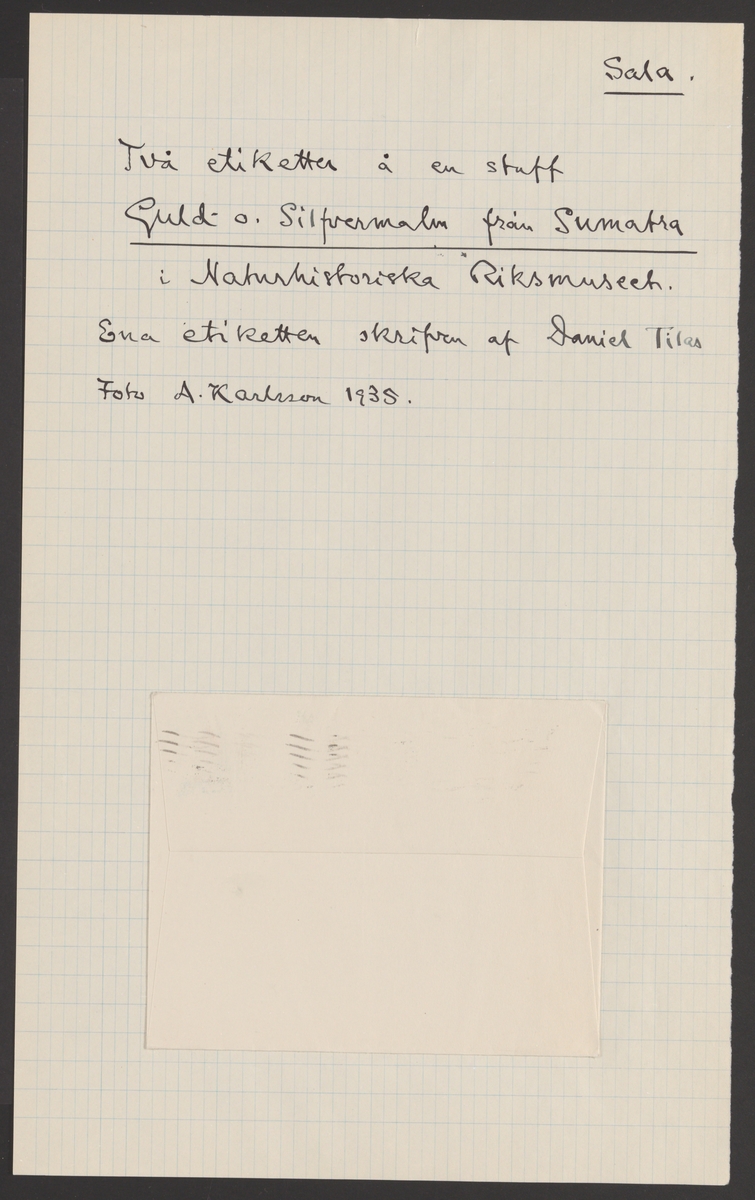 Sala.
Två etiketter å en stuff
Guld- o. Silfvermalm från Sumatra
i Naturhistoriska Riksmuseet.
Ena etiketten skrifven af Daniel Tilas
Foto A. Karlsson 1935.